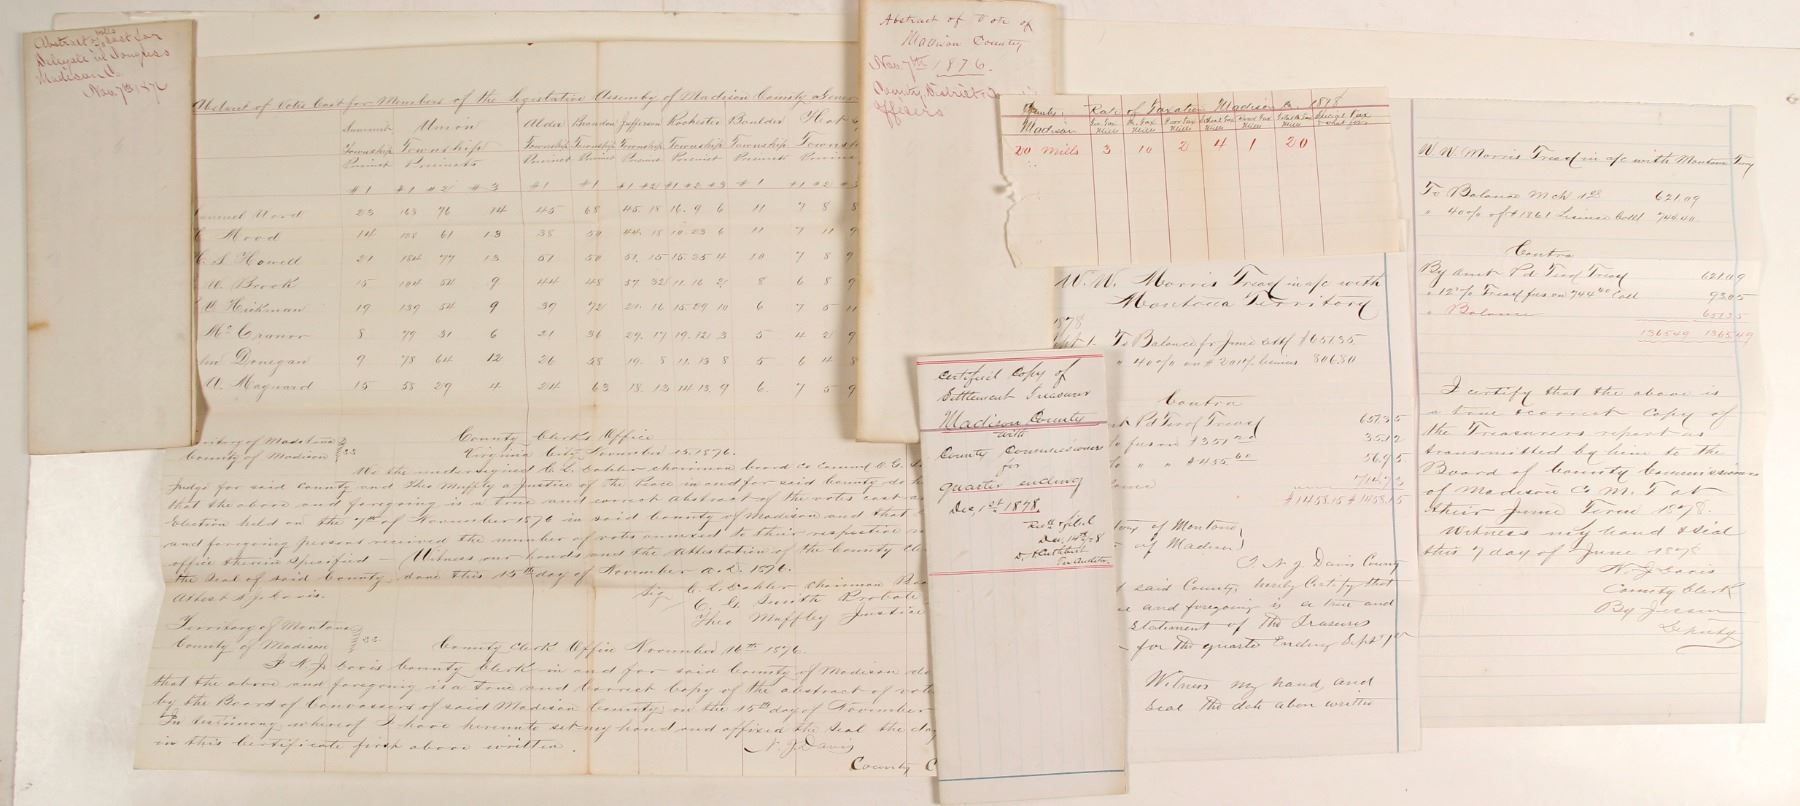 Abstract of votes cast for
Delegate in Congress
Madison Co
Nov. 7th 1876
Abstract of Votes Cast for Members of the Legislative Assembly of Madison County a Gener
Summit Union Alder Brandon Jefferson Rochester Boulder Hot
Township Township Township Township Township Township Township Township
Precinct Precincts Precinct Precinct Precinct Precinct Precincts Precinct
#1 #1 #2 #3 #1 #1 #1 #2 #1 #2 #3 #1 #1 #2 #3
Samuel Word 23 163 76 14 45 68 45 18 16 9 6 11 7 8 8
Mood 14 108 61 13 38 50 44 18 10 23 6 11 7 11 9
S Howell 21 184 77 13 51 50 51 15 15 25 4 10 7 8 9
W. Brook 15 104 54 9 44 48 37 32 11 16 2 8 6 8 9
Hickman 19 139 54 9 39 72 21 16 15 29 10 6 7 5 11
Mc Cranor 8 79 31 6 21 36 29 17 19 12 3 5 4 2 9
hn Donegan 9 78 64 12 26 58 19 8 11 13 8 5 6 4 8
A. Magnard 15 58 29 4 24 63 18 13 14 13 9 6 7 5 9
rritory of Montana
County of Madison } SS
County Clerk's Office
Virginia City, November 15. 1876.
We the undersigned C. L. Dahler chairman board Co Commrs C. G. S
Judge for said County and Theo Muffly a Justice of the Peace in and for said County do h
that the above and foregoing is a true and correct abstract of the votes cast a
Election held on the 7th of November 1876 in said County of Madison and that
and foregoing persons received the number of votes annexed to their respective n
office therein specified – Witness our hands and the attestation of the County Cle
the Seal of said County, done this 15th day of November A.D. 1876.
Attest N J Davis.
Sig
C. L. Dahler Chairman Boa
C. G. Smith Probate
Theo Muffley Justice
Territory of Montana
County of Madison } SS
County Clerk Office November 16th 1876.
I N. J. Davis County Clerk in and for said County of Madison do
that the above and foregoing is a true and correct copy of the abstract of vote
by the Board of Canvassers of said Madison County, on the 15th day of November
In testimony whereof I have hereunto set my hand and affixed the Seal the day
in this Certificate first above written.
N. J. Davis
County C
Abstract of Vote of
Madison County
Nov. 7th 1876.
County, District &
Officers
County Rate of Taxation Madison Co. 1878
Madison
Mills Mills Mills Mills Mills Mills
20 Mills 3 10 2 4 1 20
Certified Copy of
Settlement Treasurer
Madison County
with
County Commissioners
for
quarter ending
Dec. 1st 1878.
Recd & filed
Dec. 14th /78
D. H Cuthbert
Ter Auditor
W. W. Morris Treas in a/c with
Montana Territory
1878
Sept 1. To Balance fr June sett $651.35
" 40% on $2014 license 806.80
Contra
nt Pd Terr Treas 657.35
fees on $351.20 35.12
" " $455.60 56.95
714.73
$1458.15 $1458.15
tory of Montana
of Madison
I N. J. Davis County
f said County, hereby Certify that
e and foregoing is a true and
Statement of the Treasurer
for the quarter Ending Sept 1st
Witness my hand, and
Seal the date above written
W. W. Morris Treas in a/c with Montana Try
To Balance Mch 1st 621.09
" 40% of $1861 License Coltd 744.40
Contra
By amt Pd Terr Treas 621.09
" 12½% Treas fees on 744.40 Coll 93.05
" Balance 651.35
1365.49 1365.49
I certify that the above is
a true & correct copy of
the Treasurers report as
transmitted by him to the
Board of County Commissioners
of Madison Co M. T. at
their June Term 1878.
Witness my hand & Seal
this 7 day of June 1878
N. J. Davis
County Clerk
By
Deputy